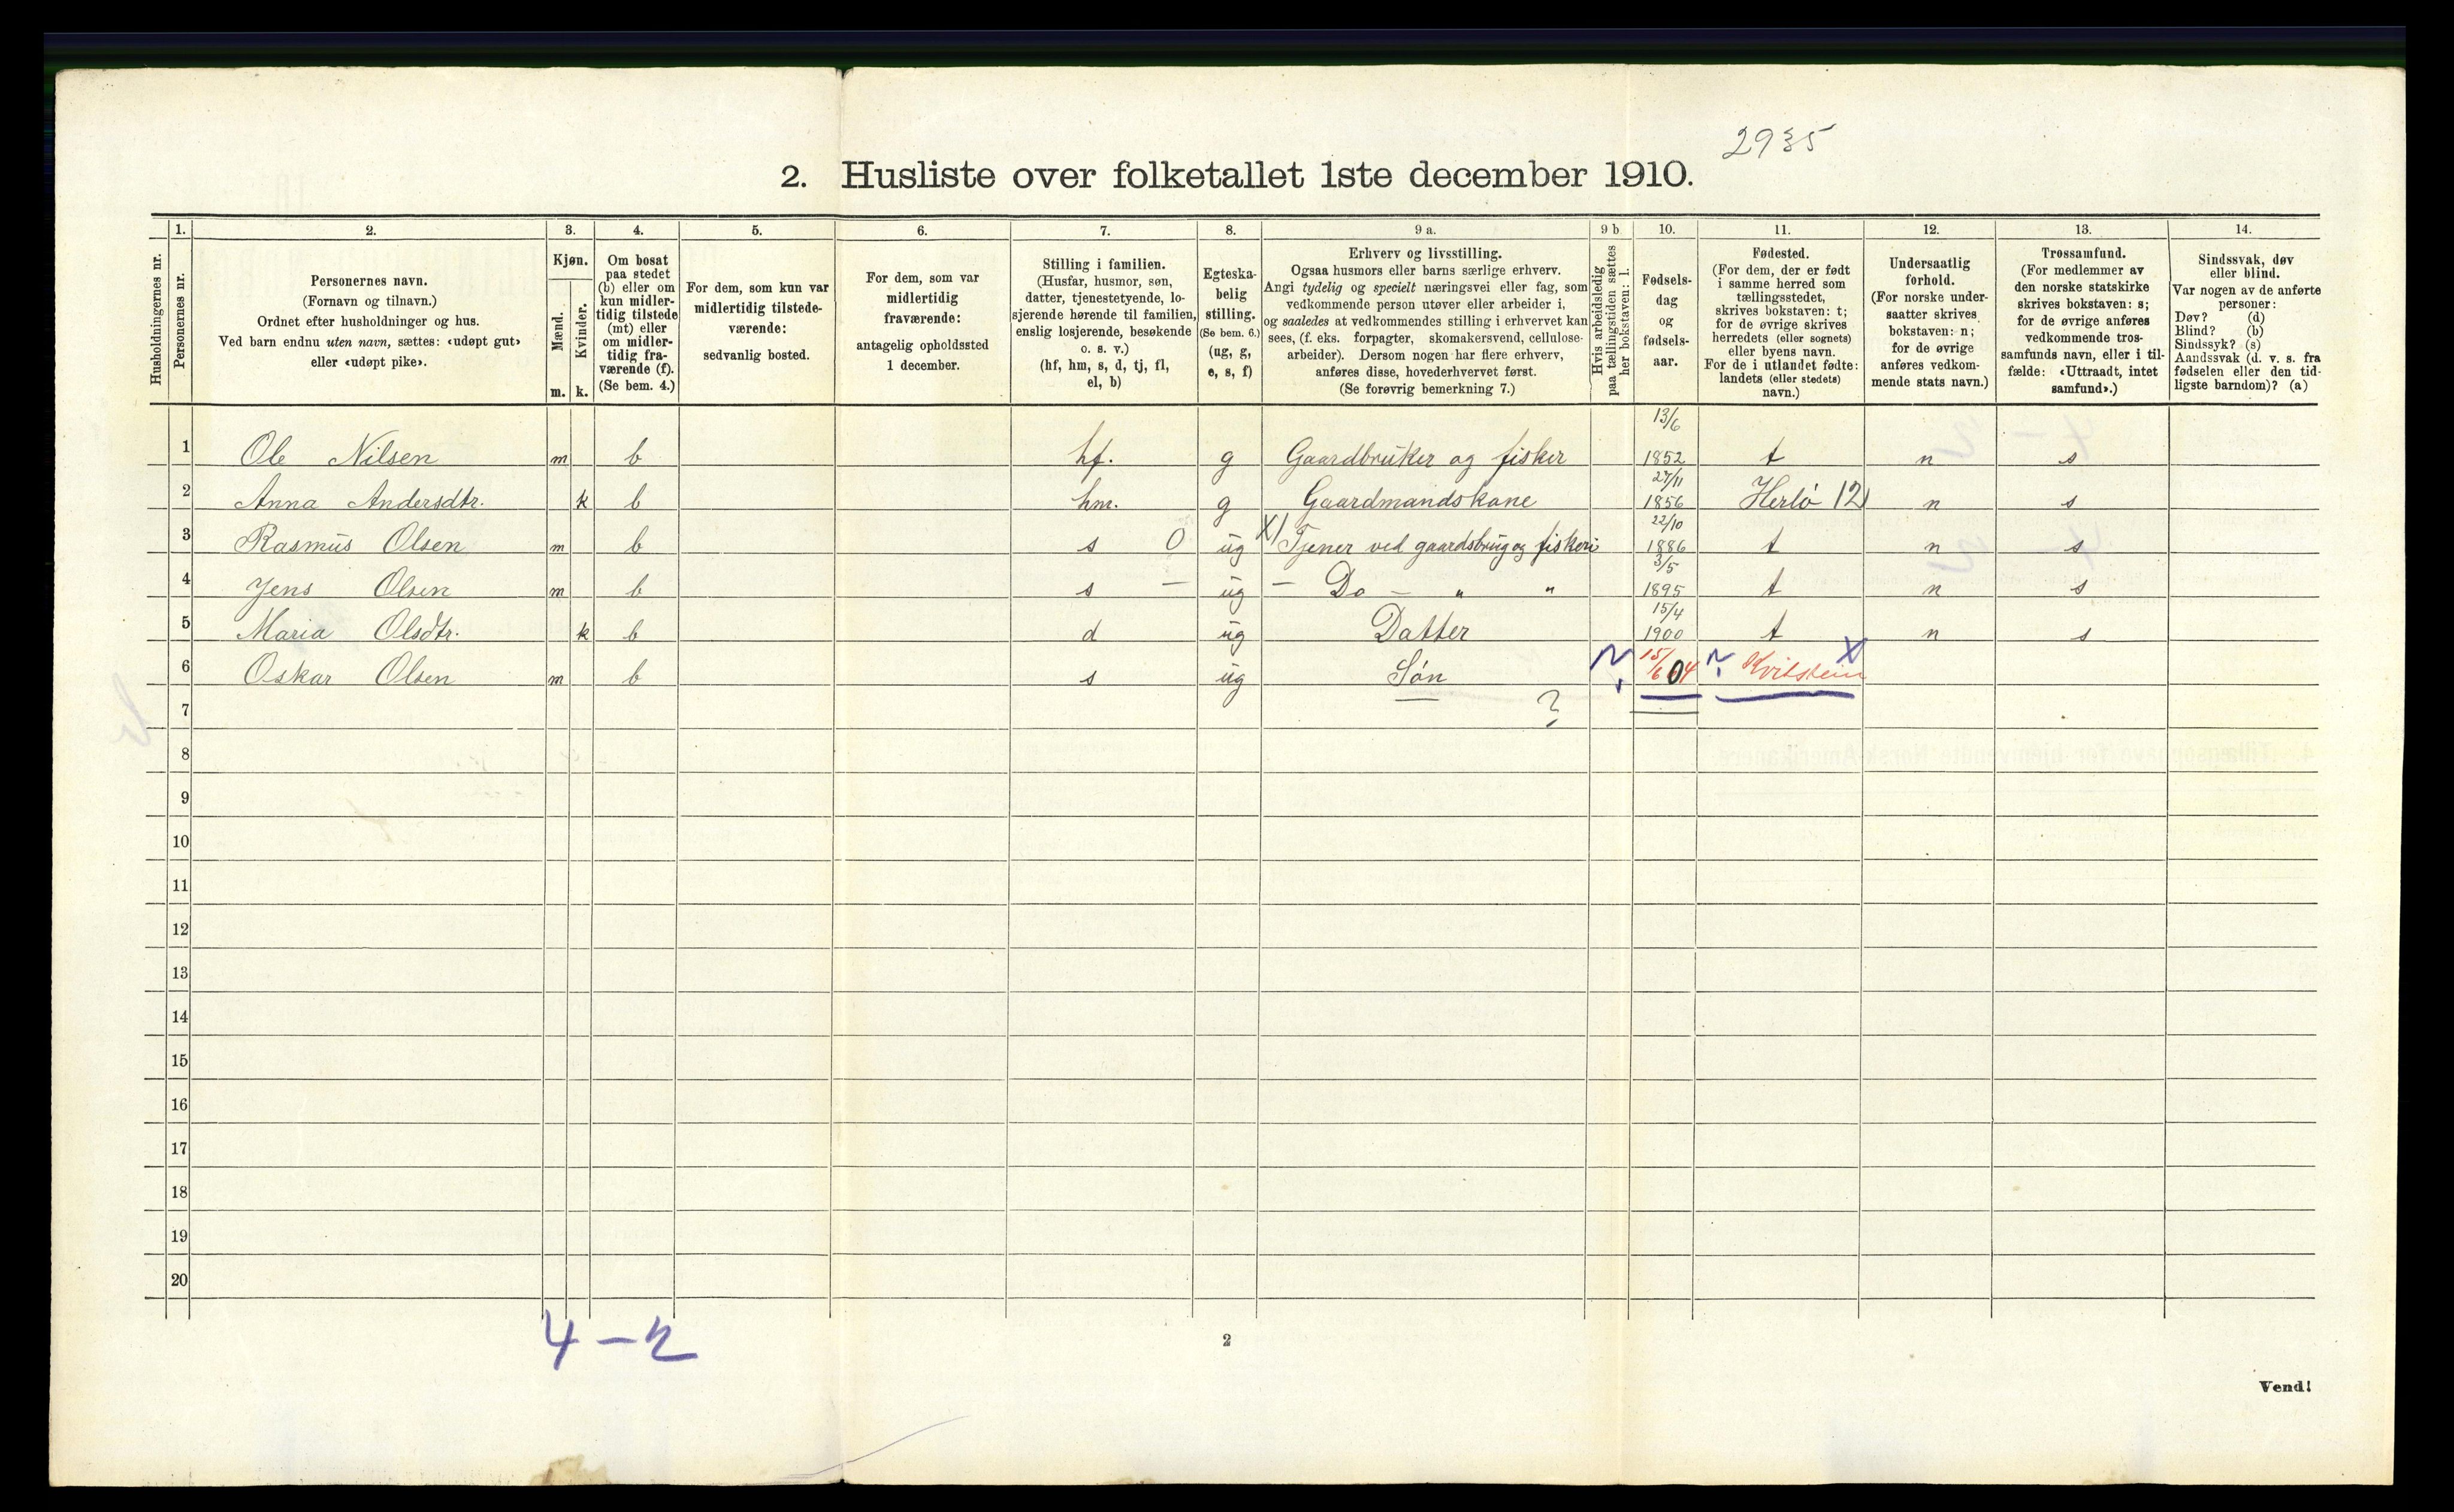 2935
2. Husliste over folketallet 1ste december 1910.
Husholdningernes nr.
1. Personernes nr.
2.
Personernes navn.
(Fornavn og tilnavn.)
Ordnet efter husholdninger og hus.
Ved barn endnu uten navn, sættes: «udøpt gut»
eller «udøpt pike».
3.
Kjøn.
Mænd. Kvinder.
m. k.
4.
Om bosat
paa stedet
(b) eller om
kun midler-
tidig tilstede
(mt) eller
om midler-
tidig fra-
værende (f).
(Se bem. 4.)
5.
For dem, som kun var
midlertidig tilstede-
værende:
sedvanlig bosted.
6.
For dem, som var
midlertidig
fraværende:
antagelig opholdssted
1 december.
7.
Stilling i familien.
(Husfar, husmor, søn,
datter, tjenestetyende, lo-
sjerende hørende til familien,
enslig losjerende, besøkende
o. s. v.)
(hf, hm, s, d, tj, fl,
el, b)
8.
Egteska-
belig
stilling.
(Se bem. 6.)
(ug, g,
e, s, f)
9 a.
Erhverv og livsstilling.
Ogsaa husmors eller barns særlige erhverv.
Angi tydelig og specielt næringsvei eller fag, som
vedkommende person utøver eller arbeider i,
og saaledes at vedkommendes stilling i erhvervet kan
sees, (f. eks. forpagter, skomakersvend, cellulose-
arbeider). Dersom nogen har flere erhverv,
anføres disse, hovederhvervet først.
(Se forøvrig bemerkning 7.)
9 b
Hvis arbeidsledig
paa tællingstiden sættes
her bokstaven: l.
10.
Fødsels-
dag
og
fødsels-
aar.
11.
Fødested.
(For dem, der er født
i samme herred som
tællingsstedet,
skrives bokstaven: t;
for de øvrige skrives
herredets (eller sognets)
eller byens navn.
For de i utlandet fødte:
landets (eller stedets)
navn.)
12.
Undersaatlig
forhold.
(For norske under-
saatter skrives
bokstaven: n;
for de øvrige
anføres vedkom-
mende stats navn.)
13.
Trossamfund.
(For medlemmer av
den norske statskirke
skrives bokstaven: s;
for de øvrige anføres
vedkommende tros-
samfunds navn, eller i til-
fælde: «Uttraadt, intet
samfund».)
14.
Sindssvak, døv
eller blind.
Var nogen av de anførte
personer:
Døv? (d)
Blind? (b)
Sindssyk? (s)
Aandssvak (d. v. s. fra
fødselen eller den tid-
ligste barndom)? (a)
1 Ole Nilsen m b hf. g Gaardbruker og fisker 13/6 1852 t n s
2 Anna Andersdtr. k b hm. g Gaardmandskone 27/11 1856 Herlø 12 n s
3 Rasmus Olsen m b s 0 ug X) Tjener ved gaardsbrug og fiskeri 22/10 1886 t n s
4 Jens Olsen m b s — ug — Do — " " 3/5 1895 t n s
5 Maria Olsdtr. k b d ug Datter 15/4 1900 t n s
6 Oskar Olsen m b s ug Søn 15/6 04 Kvitstein X
7 ?
8
9
10
11
12
13
14
15
16
17
18
19
20
4 – 2
2
Vend!